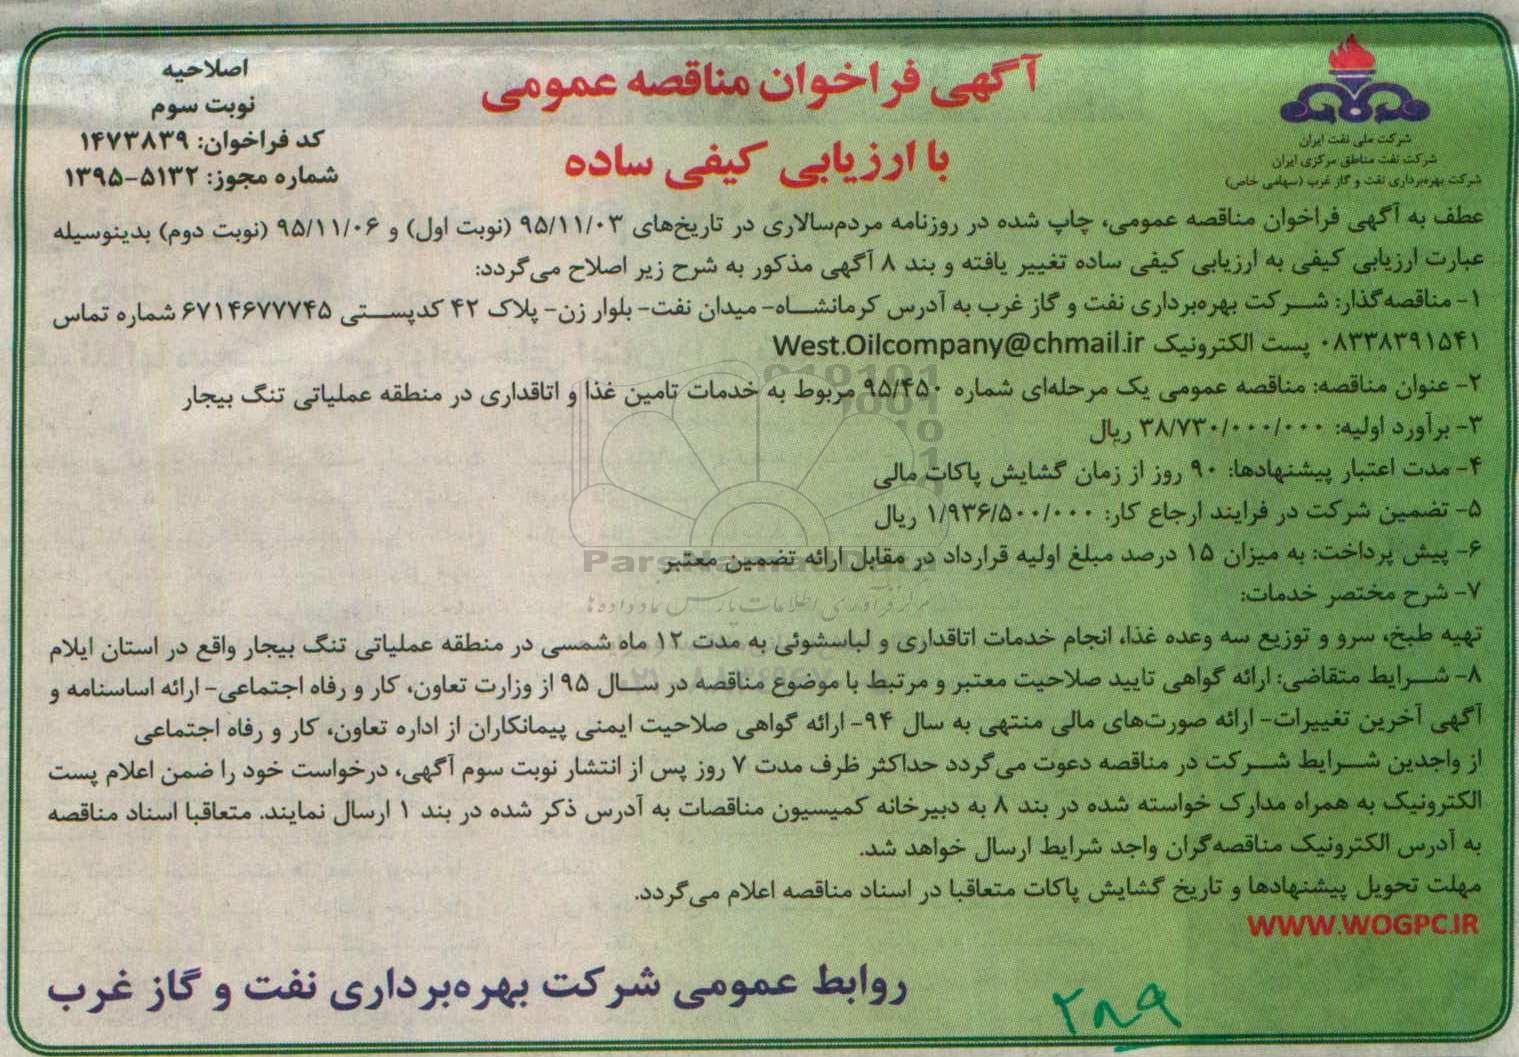 شرکت ملی نفت ایران
شرکت نفت مناطق مرکزی ایران
شرکت بهره‌برداری نفت و گاز غرب (سهامی خاص)
آگهی فراخوان مناقصه عمومی
با ارزیابی کیفی ساده
اصلاحیه
نوبت سوم
کد فراخوان: ۱۴۷۳۸۳۹
شماره مجوز: ۵۱۳۲-۱۳۹۵
عطف به آگهی فراخوان مناقصه عمومی، چاپ شده در روزنامه مردم‌سالاری در تاریخ‌های ۹۵/۱۱/۰۳ (نوبت اول) و ۹۵/۱۱/۰۶ (نوبت دوم) بدینوسیله
عبارت ارزیابی کیفی به ارزیابی کیفی ساده تغییر یافته و بند ۸ آگهی مذکور به شرح زیر اصلاح می‌گردد:
۱- مناقصه‌گذار: شرکت بهره‌برداری نفت و گاز غرب به آدرس کرمانشاه- میدان نفت- بلوار زن- پلاک ۴۲ کدپستی ۶۷۱۴۶۷۷۷۴۵ شماره تماس
۰۸۳۳۸۳۹۱۵۴۱ پست الکترونیک West.Oilcompany@chmail.ir
۲- عنوان مناقصه: مناقصه عمومی یک مرحله‌ای شماره ۹۵/۴۵۰ مربوط به خدمات تامین غذا و اتاقداری در منطقه عملیاتی تنگ بیجار
۳- برآورد اولیه: ۳۸/۷۳۰/۰۰۰/۰۰۰ ریال
۴- مدت اعتبار پیشنهادها: ۹۰ روز از زمان گشایش پاکات مالی
۵- تضمین شرکت در فرایند ارجاع کار: ۱/۹۳۶/۵۰۰/۰۰۰ ریال
۶- پیش پرداخت: به میزان ۱۵ درصد مبلغ اولیه قرارداد در مقابل ارائه تضمین معتبر
ParsNamadData
۷- شرح مختصر خدمات:
تهیه طبخ، سرو و توزیع سه وعده غذا، انجام خدمات اتاقداری و لباسشوئی به مدت ۱۲ ماه شمسی در منطقه عملیاتی تنگ بیجار واقع در استان ایلام
۸- شرایط متقاضی: ارائه گواهی تایید صلاحیت معتبر و مرتبط با موضوع مناقصه در سال ۹۵ از وزارت تعاون، کار و رفاه اجتماعی- ارائه اساسنامه و
آگهی آخرین تغییرات- ارائه صورت‌های مالی منتهی به سال ۹۴- ارائه گواهی صلاحیت ایمنی پیمانکاران از اداره تعاون، کار و رفاه اجتماعی
از واجدین شرایط شرکت در مناقصه دعوت می‌گردد حداکثر ظرف مدت ۷ روز پس از انتشار نوبت سوم آگهی، درخواست خود را ضمن اعلام پست
الکترونیک به همراه مدارک خواسته شده در بند ۸ به دبیرخانه کمیسیون مناقصات به آدرس ذکر شده در بند ۱ ارسال نمایند. متعاقبا اسناد مناقصه
به آدرس الکترونیک مناقصه‌گران واجد شرایط ارسال خواهد شد.
مهلت تحویل پیشنهادها و تاریخ گشایش پاکات متعاقبا در اسناد مناقصه اعلام می‌گردد.
WWW.WOGPC.IR
روابط عمومی شرکت بهره‌برداری نفت و گاز غرب
۲۸۹